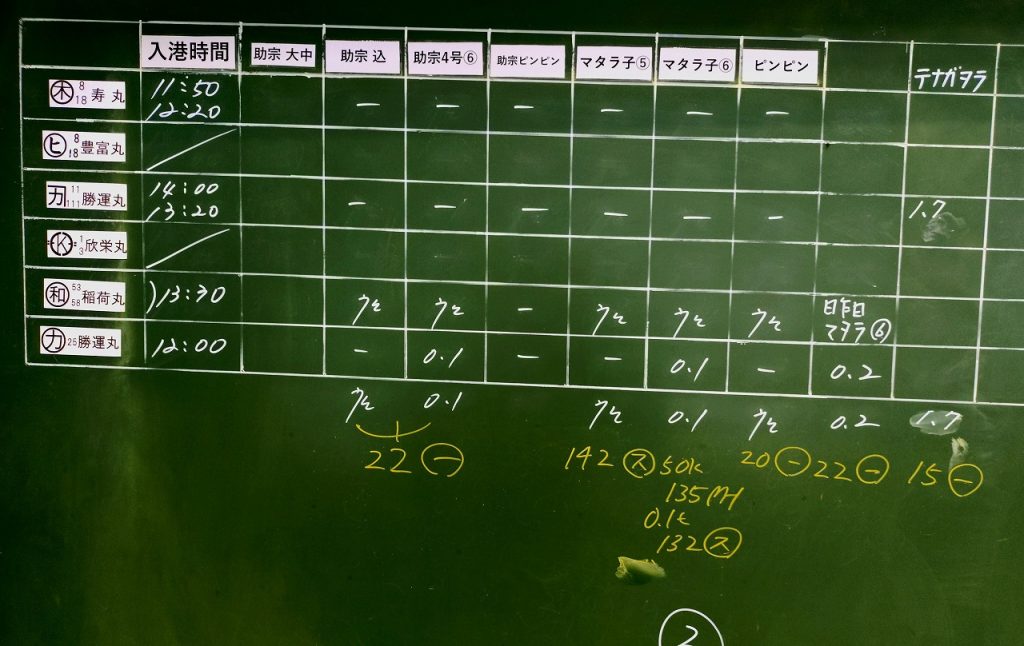 入港時間 助宗 大中 助宗 込 助宗4号⑥ 助宗ピンピン マタラ子⑤ マタラ子⑥ ピンピン テナガダラ
㊍ 8 18 寿丸 11:50 12:20 ー ー ー ー ー ー
ヒ 8 18 豊富丸
カ 11 111 勝運丸 14:00 13:20 ー ー ー ー ー ー 1.7
K 1 3 欣栄丸
和 53 58 稲荷丸 13:30 ー 昨日 マダラ⑥
カ 25 勝運丸 12:00 ー 0.1 ー ー 0.1 ー 0.2
0.1 0.1 0.2 1.7
22㊀ 142ス 50k 20㊀ 22㊀ 15㊀
135
0.1t
132ス
2